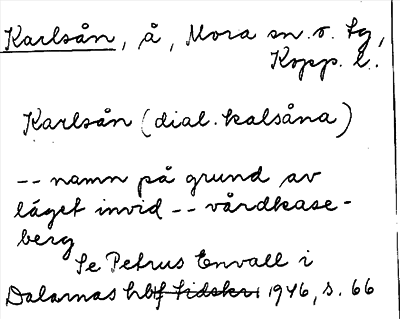 Karlsån, å, Mora sn. o. tg,
Kopp. l.
Karlsån (dial. kalsåna)
-- namn på grund av
läget invid -- vårdkase-
berg
Se Petrus Envall i
Dalarnas hbf tidskr. 1946, s. 66